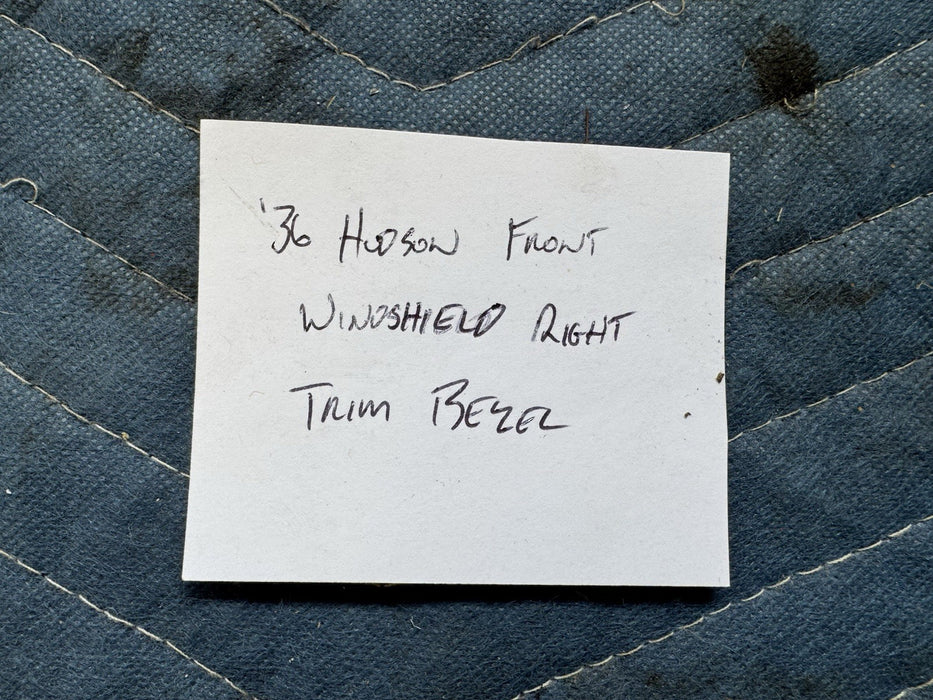 '36 HUDSON FRONT
WINDSHIELD RIGHT
TRIM BEZEL